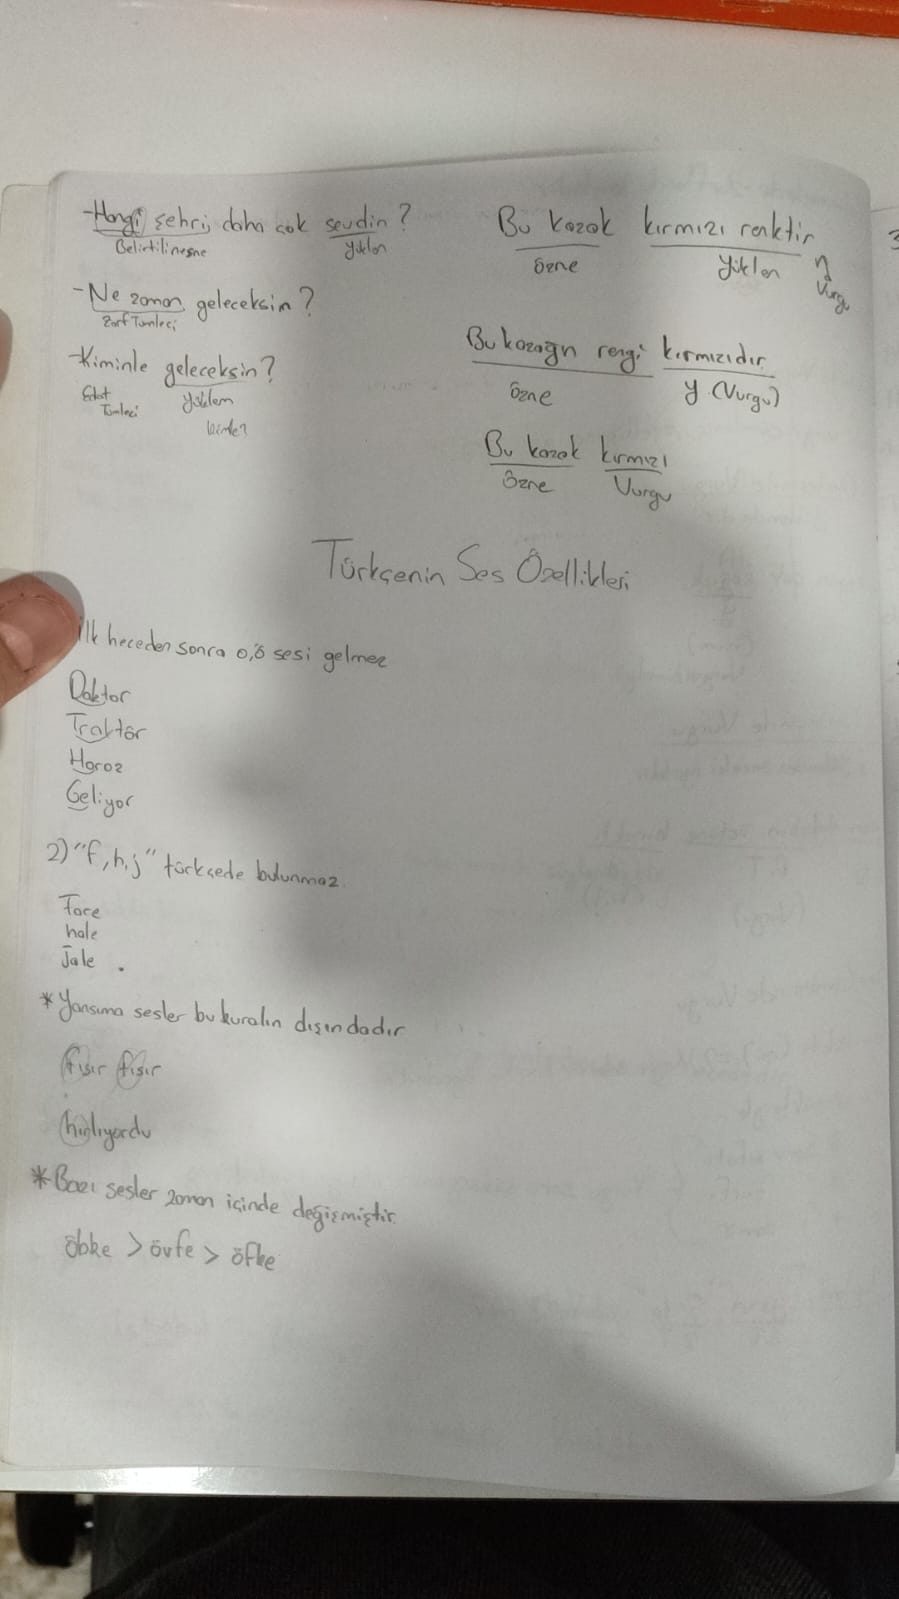 -Hangi şehri, daha çok sevdin?
Belirtili nesne
Yüklem
-Ne zaman geleceksin?
Zarf Tümleci
-Kiminle geleceksin?
Edat
Tümleci
Yüklem
Bu kazak kırmızı renktir
özne
Yüklem
Vurgu
Bu kazağın rengi kırmızıdır
özne
y (Vurgu)
Bu kazak kırmızı
Özne
Vurgu
Türkçenin Ses Özellikleri
ilk heceden sonra o,ö sesi gelmez
Doktor
Traktör
Horoz
Geliyor
2) "f,h,j" türkçede bulunmaz.
Face
hale
Jale .
*Yansıma sesler bu kuralın dışındadır
fışır fışır
hırlıyordu
*Bazı sesler zaman içinde değişmiştir.
öbke > övfe > öfke